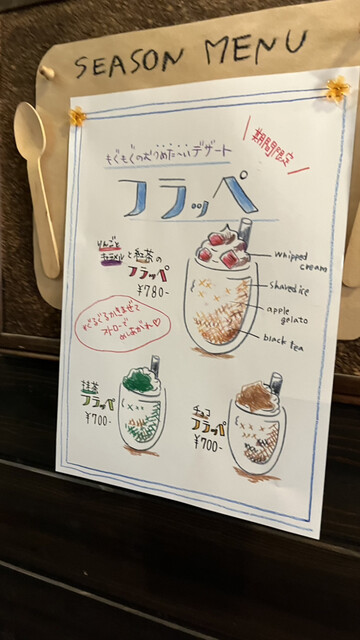 SEASON MENU
期間限定
もぐもぐのむつめた〜いデザート
フラッペ
りんごと
キャラメルと紅茶の
フラッペ
¥780-
whipped
cream
shaved ice
apple
gelato
black tea
ぐるぐるかきまぜて
ストローで
めしあがれ♡
抹茶
フラッペ
¥700-
チョコ
フラッペ
¥700-